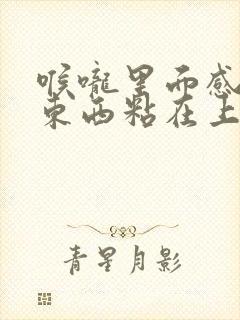 喉咙里面感
东西粘在上
青星月影